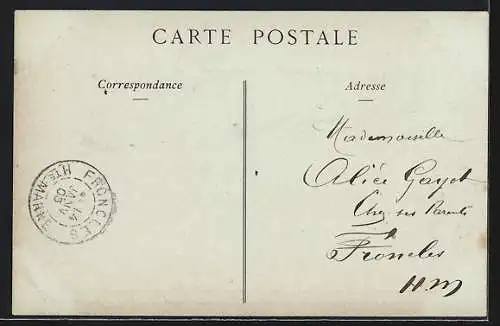 CARTE POSTALE
Correspondance
Adresse
Mademoiselle
Alice Gayet
Chez ses Parents
Froncles
H.M
FRONCLES
Hte MARNE
14
JANV
05